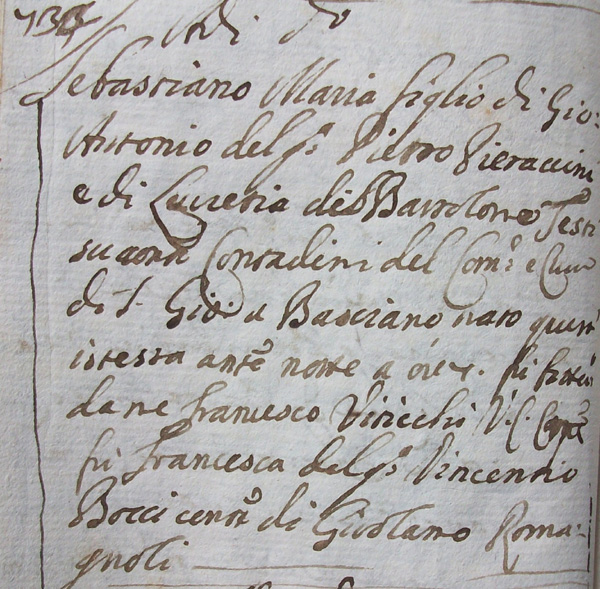 Adi do
Sebastiano Maria figlio di Gio:
Antonio del q.m Pietro Pieraccini
e di Lucresia di Bartolomeo Testi
Contadini del Com.e e Cura
di S. Gio: a Basciano nato quest'
istessa antec.te notte a ore 7. fu
da me Francesco Viricchi V.C. Comp.e
fu Francesca del q.m Vincenzio
Bocci cons.te di Girolamo Roma=
gnoli